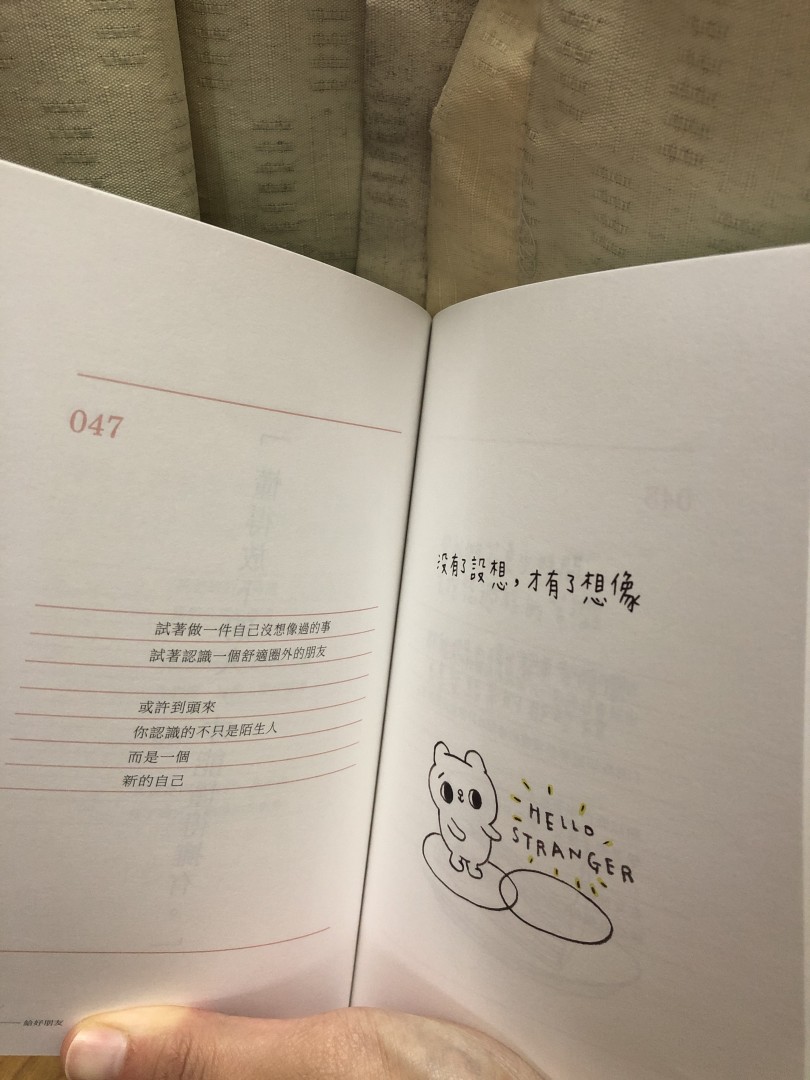 047
試著做一件自己沒想像過的事
試著認識一個舒適圈外的朋友
或許到頭來
你認識的不只是陌生人
而是一個
新的自己
給好朋友
沒有了設想，才有了想像
HELLO
STRANGER